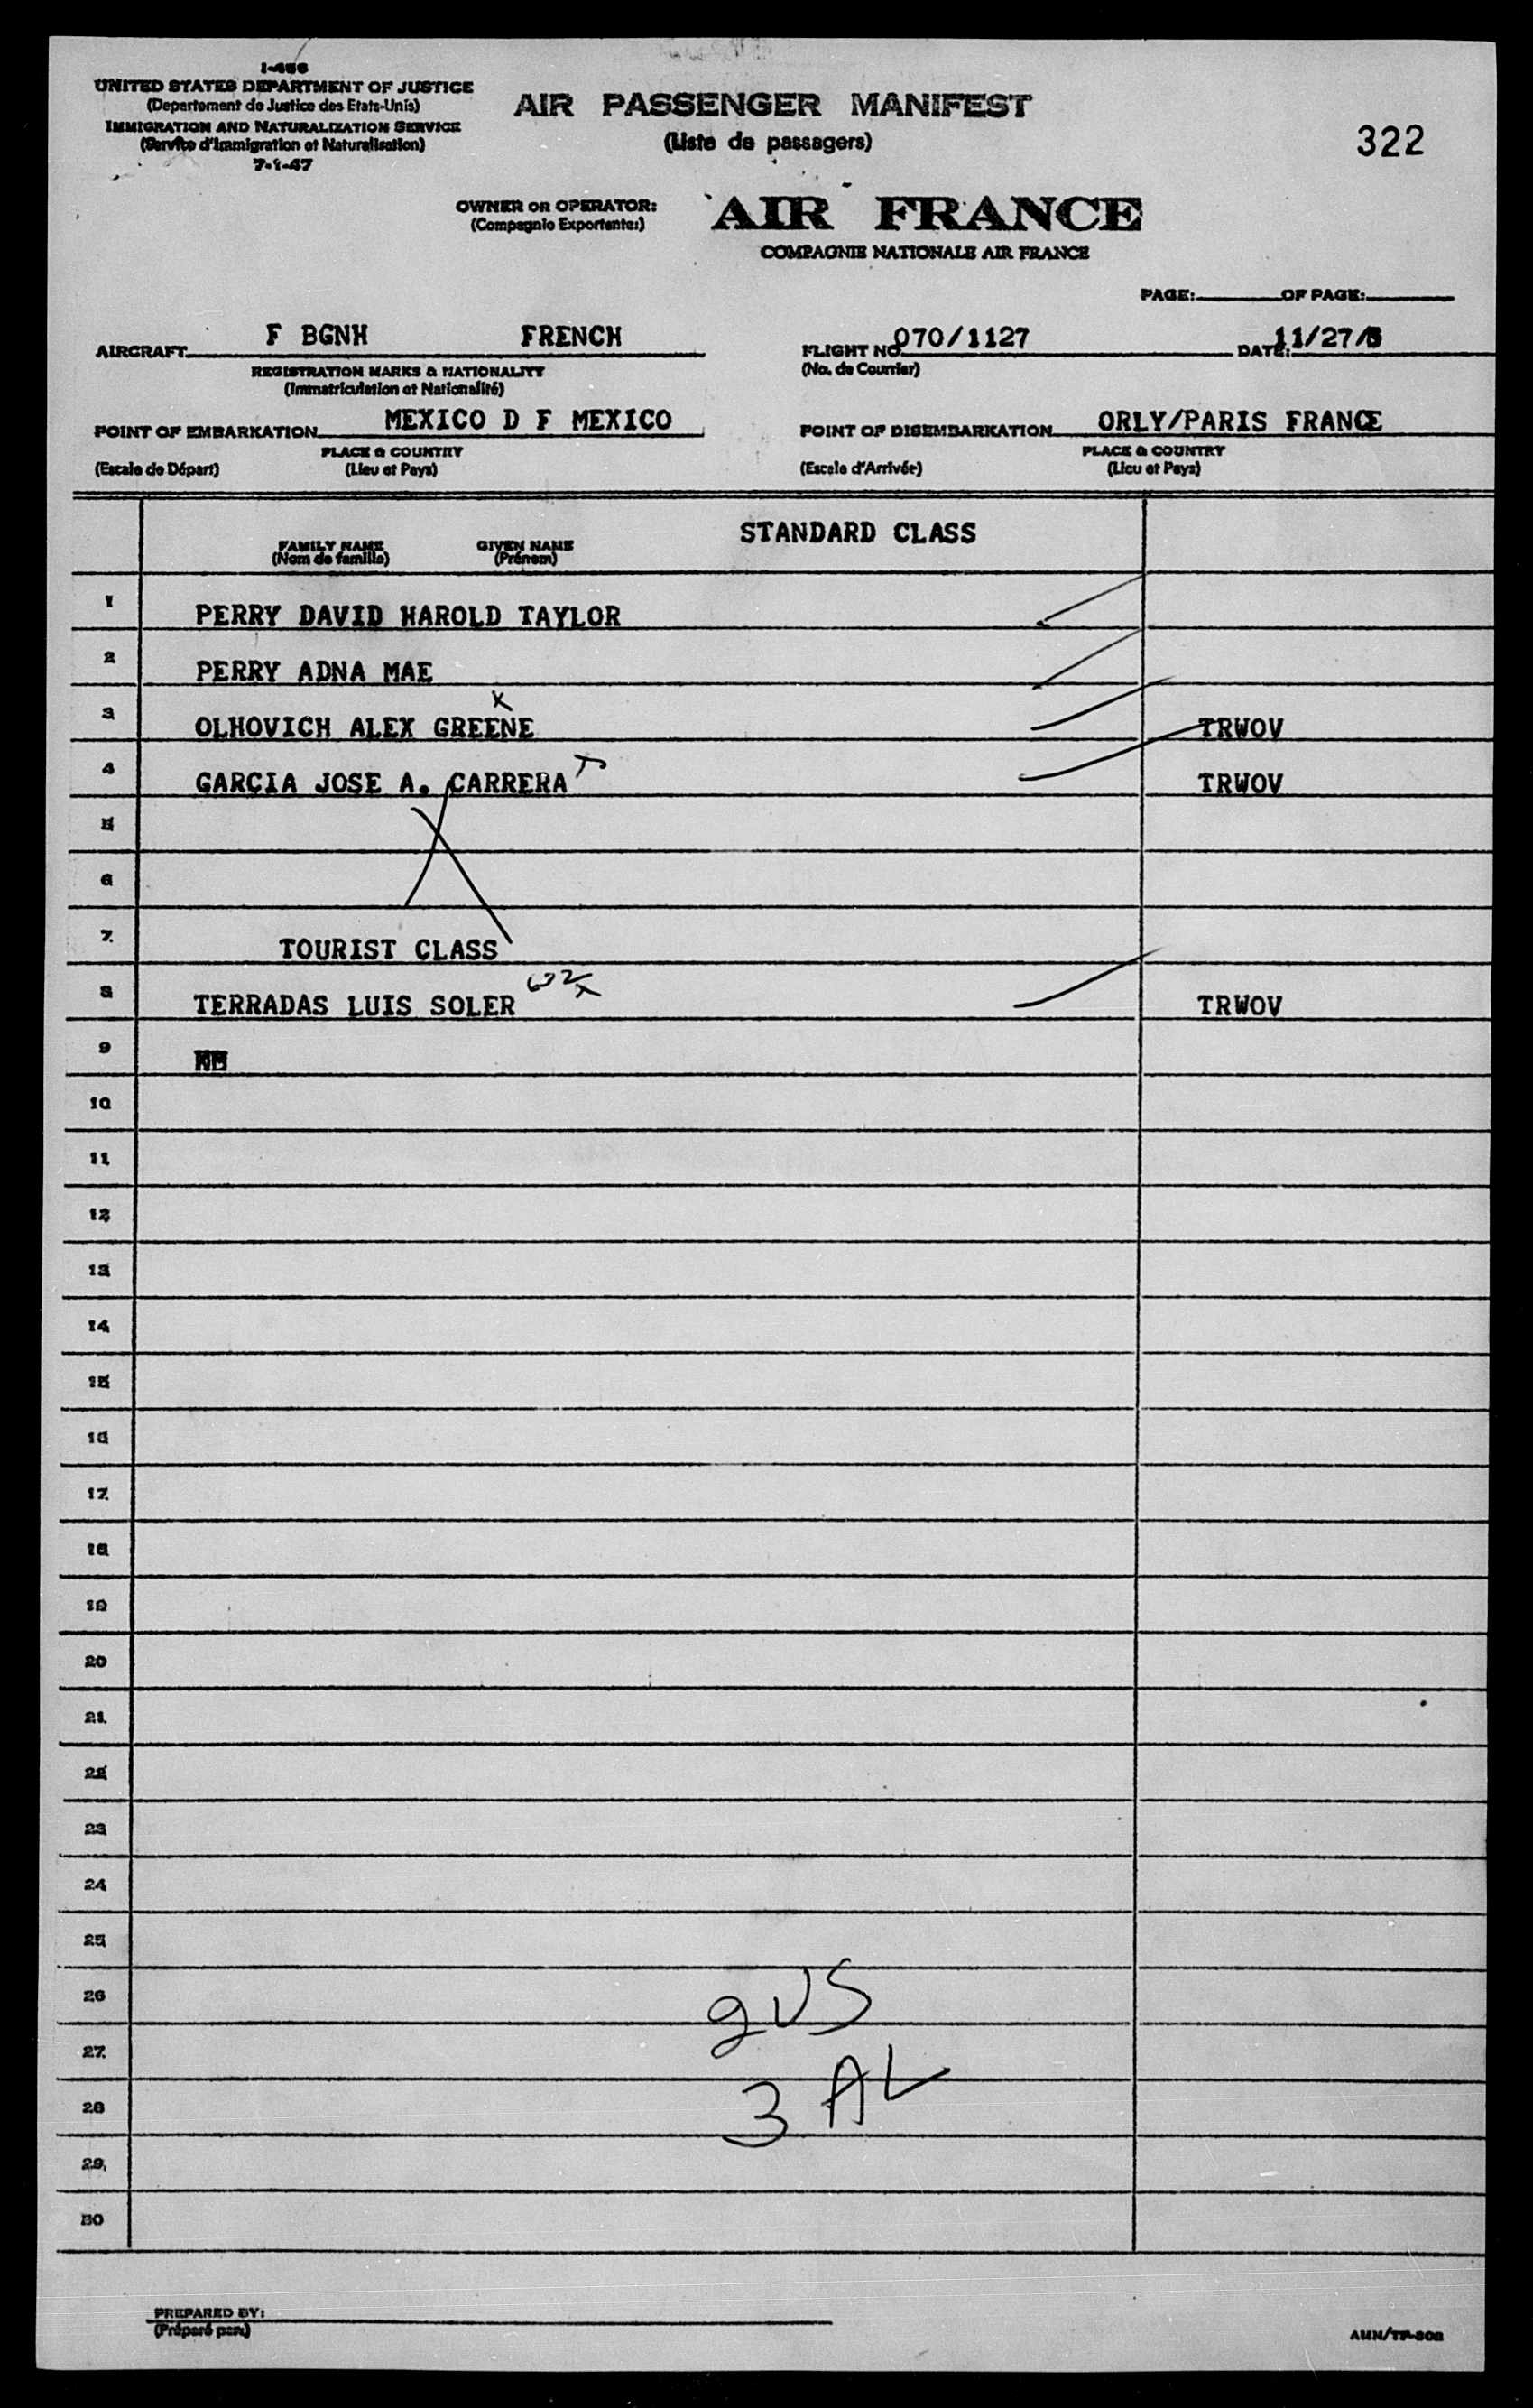 I-466
UNITED STATES DEPARTMENT OF JUSTICE
(Departement de Justice des Etats-Unis)
IMMIGRATION AND NATURALIZATION SERVICE
(Service d'Immigration et Naturalisation)
7-1-47
AIR PASSENGER MANIFEST
(Liste de passagers)
322
OWNER OR OPERATOR: AIR FRANCE
(Compagnie Exportante:)
COMPAGNIE NATIONALE AIR FRANCE
PAGE: OF PAGE:
AIRCRAFT F BGNH FRENCH FLIGHT NO. 070/1127 DATE: 11/27/5
REGISTRATION MARKS & NATIONALITY (No. de Courrier)
(Immatriculation et Nationalité)
POINT OF EMBARKATION MEXICO D F MEXICO POINT OF DISEMBARKATION ORLY/PARIS FRANCE
PLACE & COUNTRY PLACE & COUNTRY
(Escale de Départ) (Lieu et Pays) (Escale d'Arrivée) (Lieu et Pays)
STANDARD CLASS
FAMILY NAME GIVEN NAME
(Nom de famille) (Prénom)
1 PERRY DAVID HAROLD TAYLOR
2 PERRY ADNA MAE
3 OLHOVICH ALEX GREENE X TRWOV
4 GARCIA JOSE A. CARRERA TRWOV
5
6
7 TOURIST CLASS
8 TERRADAS LUIS SOLER TRWOV
9
10
11
12
13
14
15
16
17
18
19
20
21
22
23
24
25
26
27
28
29
30
2 US
3 AL
PREPARED BY:
(Préparé par:)